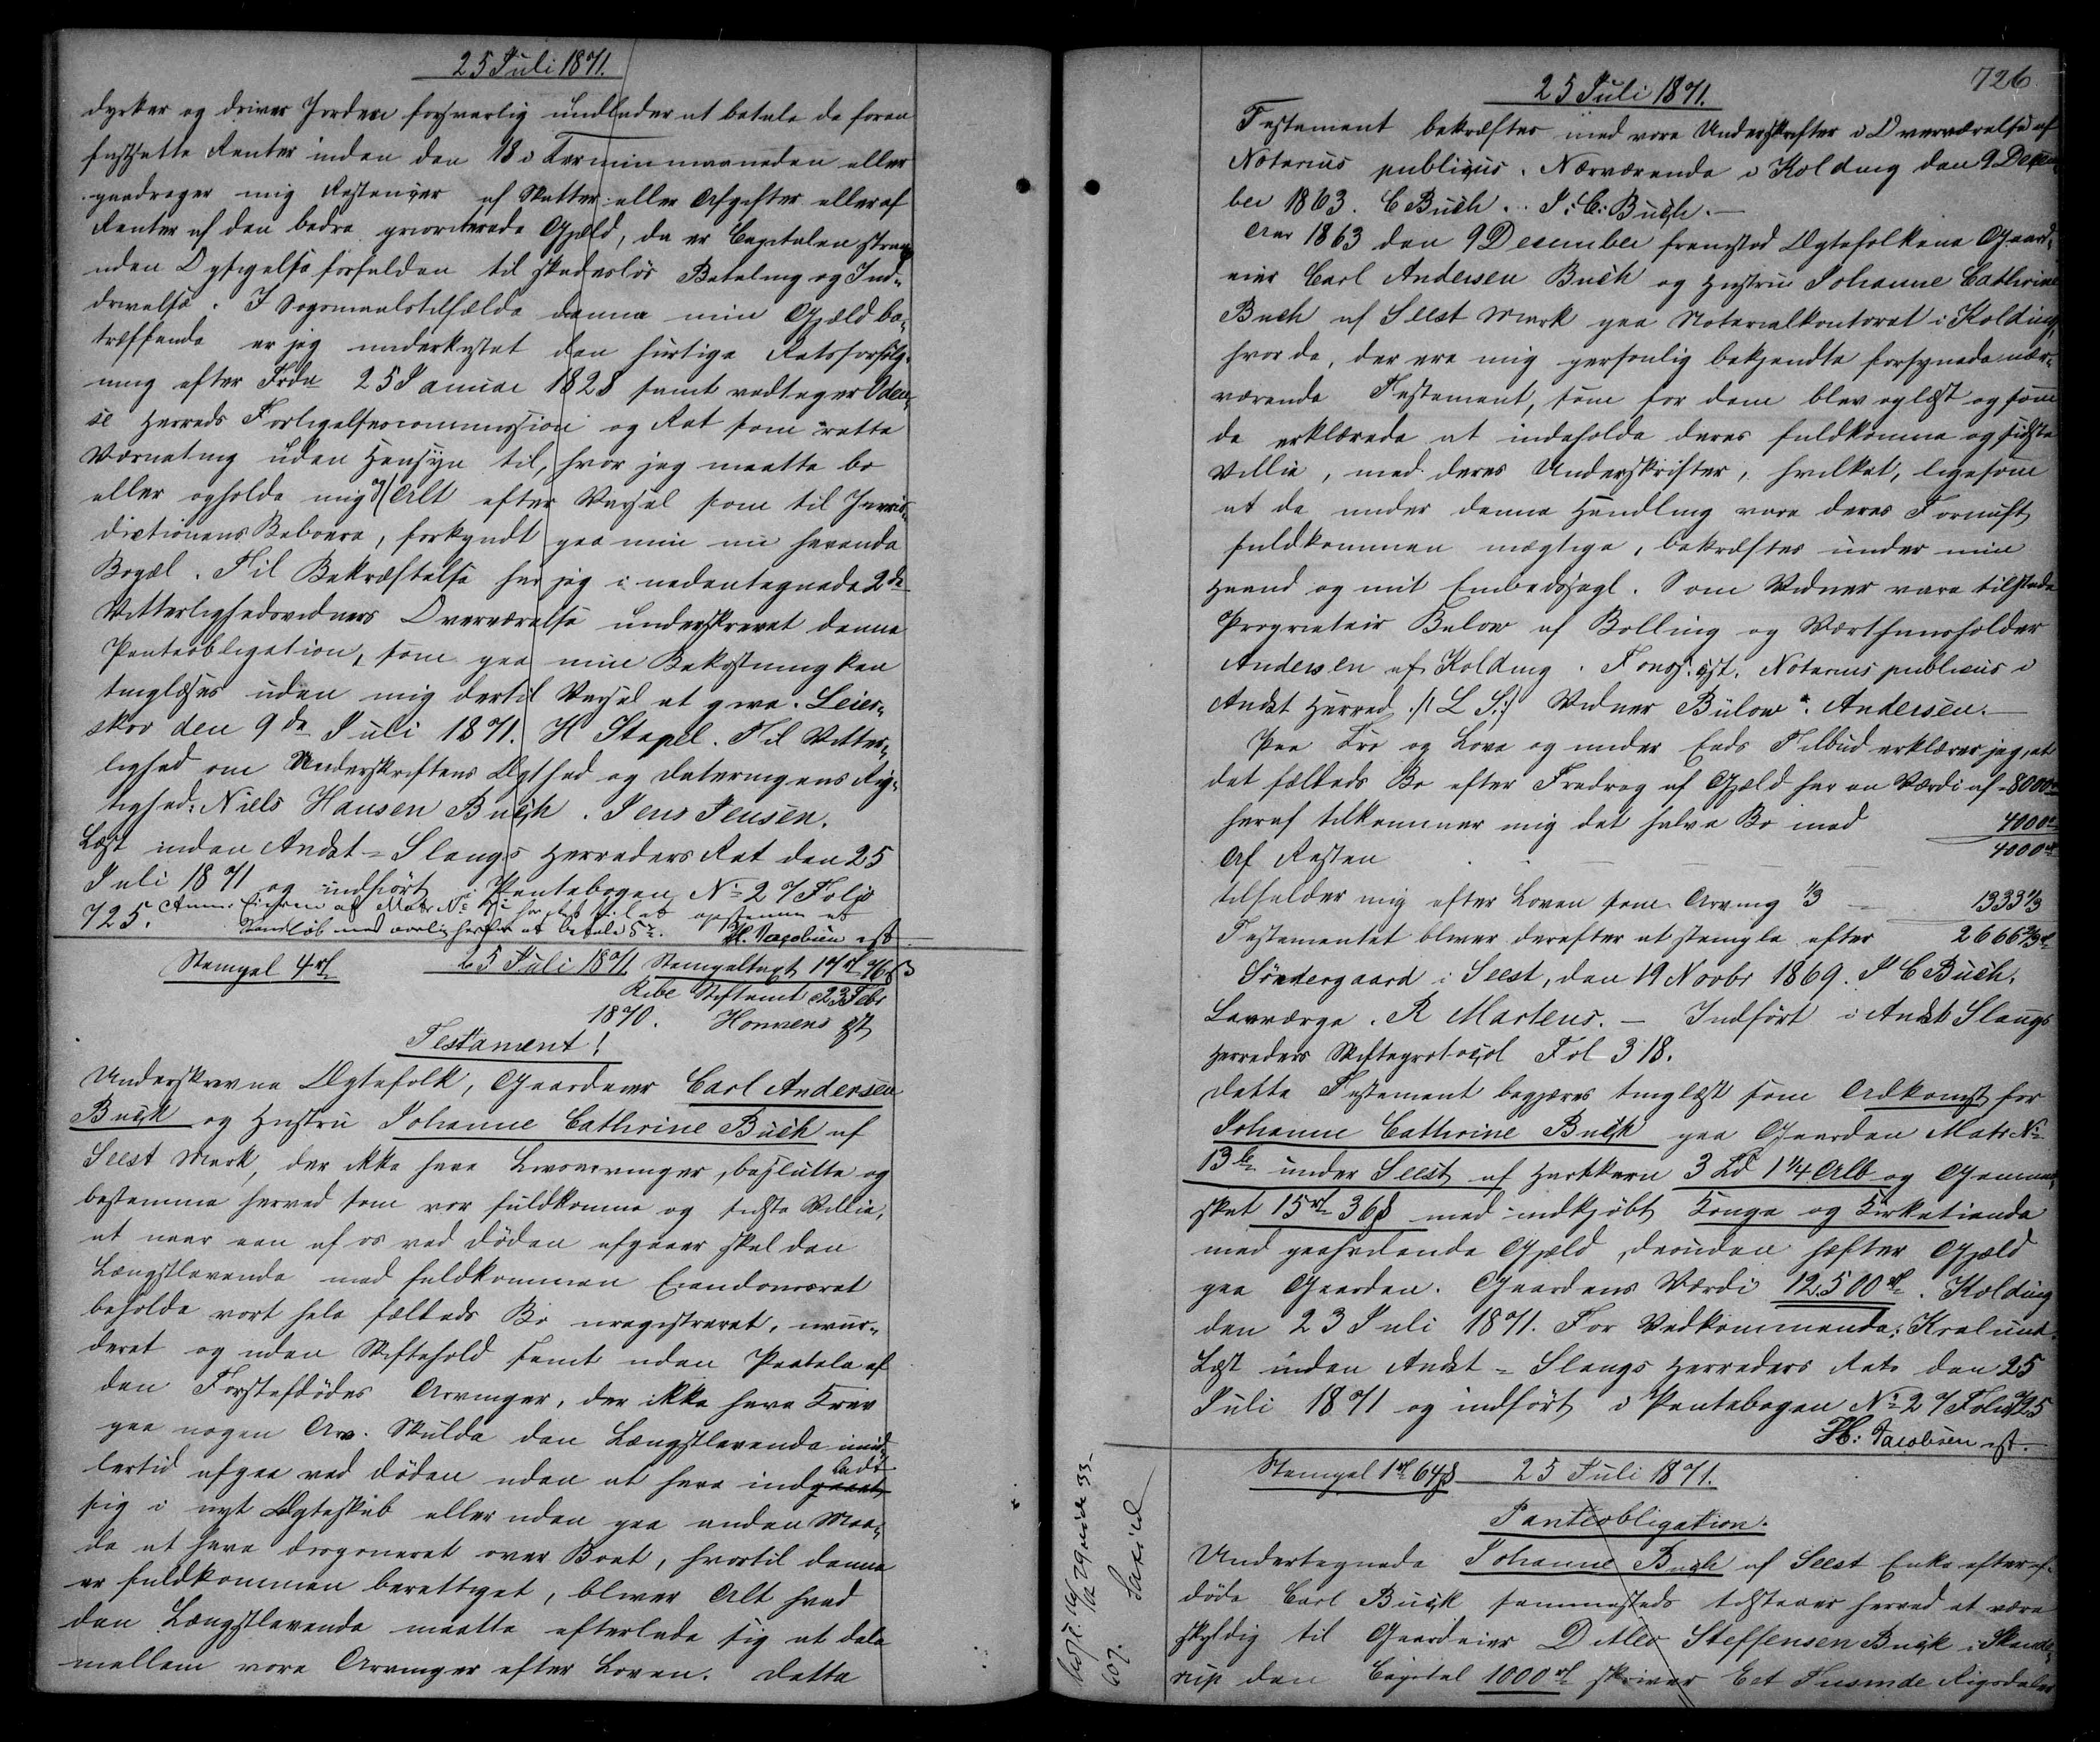 25 Juli 1871.
dyrker og driver Jorden forsvarlig undlader at betale de foran
fastsatte Renter inden den 18 i Terminmaaneden eller
paadrager mig Restancer af Skatter eller Afgifter eller af
Renter af den bedre prioriterede Gjæld, da er Capitalen strax
uden Opsigelse forfalden til skadesløs Betaling og Ind-
drivelse. I Søgsmaalstilfælde denne min Gjæld be-
træffende er jeg underkastet den hurtige Retsforfølg-
ning efter Frdn 25 Januar 1828 samt vedtager Oden-
se Herreds Forligelsescommission og Ret som rette
Værneting uden Hensyn til, hvor jeg maatte bo
eller opholde mig Alt efter Varsel som til Juris-
dictionens Beboere, forkyndt paa min nu havende
Bopæl. Til Bekræftelse har jeg i nedentegnede 2de
Vitterlighedsvidners Overværelse underskrevet denne
Panteobligation, som paa min Bekostning kan
tinglæses uden mig dertil Varsel at give. Leier-
skov den 9de Juli 1871. H Stapel. Til Vitter-
lighed om Underskriftens Ægthed og Dateringens Rig-
tighed: Niels Hansen Buch. Jens Jensen.
Læst inden Andst-Slaugs Herreders Ret den 25
Juli 1871 og indført i Pantebogen No 27 Folio
725. Anm: Eieren af Matr No
H. Jacobsen cst
Stempel 4 rd 25 Juli 1871. Stempeltaxt 17 rd 76 s
Ribe Stiftamt 23 Febr
1870. Honnens cst
Testament!
Underskrevne Ægtefolk, Gaardeier Carl Andersen
Buch og Hustru Johanne Cathrine Buch af
Seest Mark, der ikke have Livsarvinger, beslutte og
bestemme herved som vor fuldkomne og sidste Villie,
at naar een af os ved Døden afgaaer skal den
Længstlevende med fuldkommen Eiendomsret
beholde vort hele fælleds Bo uregistreret, uvur-
deret og uden Skiftehold samt uden Paatale af
den Førstafdødes Arvinger, der ikke have Krav
paa nogen Arv. Skulde den Længstlevende imid-
lertid afgaa ved Døden uden at have indgaaet ladt
sig i nyt Ægteskab eller uden paa anden Maa-
de at have disponeret over Boet, hvortil denne
er fuldkommen berettiget, bliver Alt hvad
den Længstlevende maatte efterlade sig at dele
mellem vore Arvinger efter Loven. Dette
726.
25 Juli 1871.
Testament bekræftes med vore Underskrifter i Overværelse af
Notarius publicus. Nærværende i Kolding den 9 Decem-
ber 1863. C Buch. J: C: Buch.
Aar 1863 den 9 December fremstod Ægtefolkene Gaard-
eier Carl Andersen Buch og Hustru Johanne Cathrine
Buch af Seest Mark paa Notarialkontoret i Kolding,
hvor de, der ere mig personlig bekjendte forsynede nær-
værende Testament, som for dem blev oplæst og som
de erklærede at indeholde deres fuldkomne og sidste
Villie, med deres Underskrifter, hvilket, ligesom
at de under denne Handling vare deres Fornuft
fuldkommen mægtige, bekræftes under min
Haand og mit Embedssegl. Som Vidner vare tilstede
Proprietair Bülow af Bolling og Værthuusholder
Andersen af Kolding. cst. Notarius publicus i
Andst Herred /: L S :/ Vidner Bülow. Andersen.
Paa Tro og Love og under Eeds Tilbud erklærer jeg, at
det fælleds Bo efter Fradrag af Gjæld har en Værdi af 8000 rd
heraf tilkommer mig det halve Bo med 4000 rd
Af Resten 4000 rd
tilfalder mig efter Loven som Arving 1/3 1333 1/3
Testamentet bliver derefter at stemple efter 2666 2/3 rd
Søndergaard i Seest, den 19 Novbr 1869. J C Buch.
Lavværge. R Martens. Indført i Andst Slaugs
Herreders Skifteprotocol Fol 318.
Dette Testament begjæres tinglæst som Adkomst for
Johanne Cathrine Buch paa Gaarden Matr No
13 b under Seest af Hartkorn 3 Td 1 1/4 Alb og Gammel-
skat 15 rd 36 s med indkjøbt Konge og Kirketiende
med paahvilende Gjæld, desuden hæfter Gjæld
paa Gaarden. Gaardens Værdi 12500 rd. Kolding
den 23 Juli 1871. For Vedkommende: Kralund.
Læst inden Andst-Slaugs Herreders Ret den 25
Juli 1871 og indført i Pantebogen No 27 Folio 725
H: Jacobsen cst.
Stempel 1 rd 64 s 25 Juli 1871.
Panteobligation.
Undertegnede Johanne Buch af Seest Enke efter af-
døde Carl Buch sammesteds tilstaaer herved at være
skyldig til Gaardeier Ditlev Steffensen Buch i Skande-
rup den Capital 1000 rd skriver Eet Tusinde Rigsdaler
607.